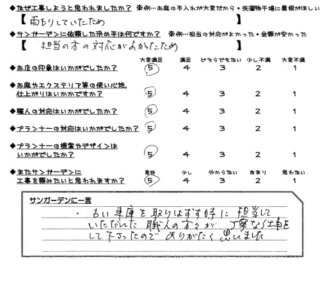 ◆なぜ工事しようと思われましたか？ 実例…お庭の手入れが大変だから・洗濯物干場に屋根がほしい
【 雨もりしていたため 】
◆サンガーデンに依頼した決め手は何ですか？ 実例…担当の対応がよかった・金額が安かった
【 担当の方の対応がよかったため 】
大変満足 満足 どちらでもない 少し不満 大変不満
◆お店の印象はいかがでしたか？ 5 4 3 2 1
◆お庭やエクステリア等の使い心地、
仕上がりはいかがですか？ 5 4 3 2 1
◆職人の対応はいかがでしたか？ 5 4 3 2 1
◆プランナーの対応はいかがでしたか？ 5 4 3 2 1
◆プランナーの提案やデザインは
いかがでしたか？ 5 4 3 2 1
是非 少し 分からない あまり 思わない
◆またサンガーデンに
工事を頼みたいと思われますか？ 5 4 3 2 1
サンガーデンに一言
・古い車庫を取りはずす時に 担当して
いただいた 職人の方々が 丁寧な仕事を
して下さったので ありがたく 思いました